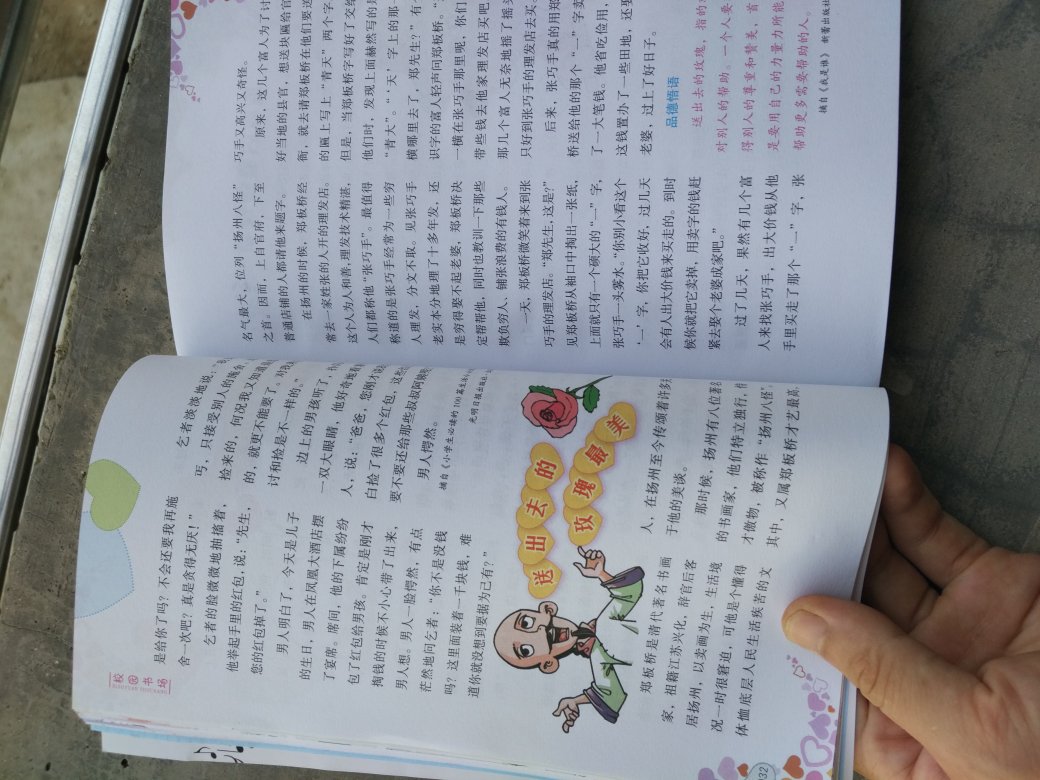 校园书场
XIAOYUAN SHUCHANG
是给你了吗？不会还要我再施
舍一次吧？真是贪得无厌！”
乞者的脸微微地抽搐着，
他举起手里的红包，说：“先生，
您的红包掉了。”
男人明白了，今天是儿子
的生日，男人在凤凰大酒店摆
了宴席。席间，他的下属纷纷
包了红包给男孩。肯定是刚才
掏钱的时候不小心，带了出来，
男人想。男人一脸愕然，有点
茫然地问乞者：“你不是没钱
吗？这里面装着一千块钱，难
道你就没想到要据为己有？”
乞者淡淡地说：
丐，只接受别人的施舍
捡来的，何况我又知道
的，就更不能要了。
讨和捡是不一样的。”
边上的男孩听了，
一双大眼睛，他好奇地看
人，说：“爸爸，您刚才
白捡了很多个红包，这
要不要还给那些叔叔阿姨
男人愕然。
摘自《小学生必读的100篇
光明日报出版社
送出去的
玫瑰最美
郑板桥是清代著名书画
家，祖籍江苏兴化，辞官后客
居扬州，以卖画为生，生活境
况一时很窘迫，可他是个懂得
体恤底层人民生活疾苦的文
人，在扬州至今传颂着许多
于他的美谈。
那时候，扬州有八位著名
的书画家，他们特立独行，
才傲物，被称作“扬州八怪”
其中，又属郑板桥才艺最高，
32
名气最大，位列“扬州八怪”
之首。因而，上自官府，下至
普通店铺的人都请他来题字。
在扬州的时候，郑板桥经
常去一家姓张的人开的理发店。
这个人为人和善，理发技术精湛，
人们都称他“张巧手”。最值得
称道的是张巧手经常为一些穷
人理发，分文不取。见张巧手
老实本分地理了十多年发，还
是穷得娶不起老婆，郑板桥决
定帮帮他，同时也教训一下那些
欺负穷人、铺张浪费的有钱人。
一天，郑板桥微笑着来到张
巧手的理发店。“郑先生，这是？”
见郑板桥从袖口中掏出一张纸，
上面就只有一个硕大的“一”字，
张巧手一头雾水。“你别小看这个
‘一’字，你把它收好，过几天
会有人出大价钱来买走的。到时
候你就把它卖掉，用卖字的钱赶
紧去娶个老婆成家吧。”
过了几天，果然有几个富
人来找张巧手，出大价钱从他
手里买走了那个“一”字，张
巧手又高兴又奇怪。
原来，这几个富人为了讨
好当地的县官，想送块匾给官
衙，就去请郑板桥在他们要送
的匾上写上“青天”两个字
但是，当郑板桥字写好了交给
他们时，发现上面赫然写的是
“青大”。“‘天’字上的那
横哪里去了，郑先生？”有
识字的富人轻声问郑板桥。“
一横在张巧手那里呢，你们
带些钱去他家理发店买吧
那几个富人无奈地摇了摇
只好到张巧手的理发店去买
后来，张巧手真的用郑
桥送给他的那个“一”字卖
了一大笔钱。他省吃俭用，
这钱置办了一些田地，还娶
老婆，过上了好日子。
品德悟语
送出去的玫瑰，指的
对别人的帮助。一个人要
得别人的尊重和赞美，首
是要用自己的力量力所能
帮助更多需要帮助的人。
摘自《我是谁》新蕾出版社